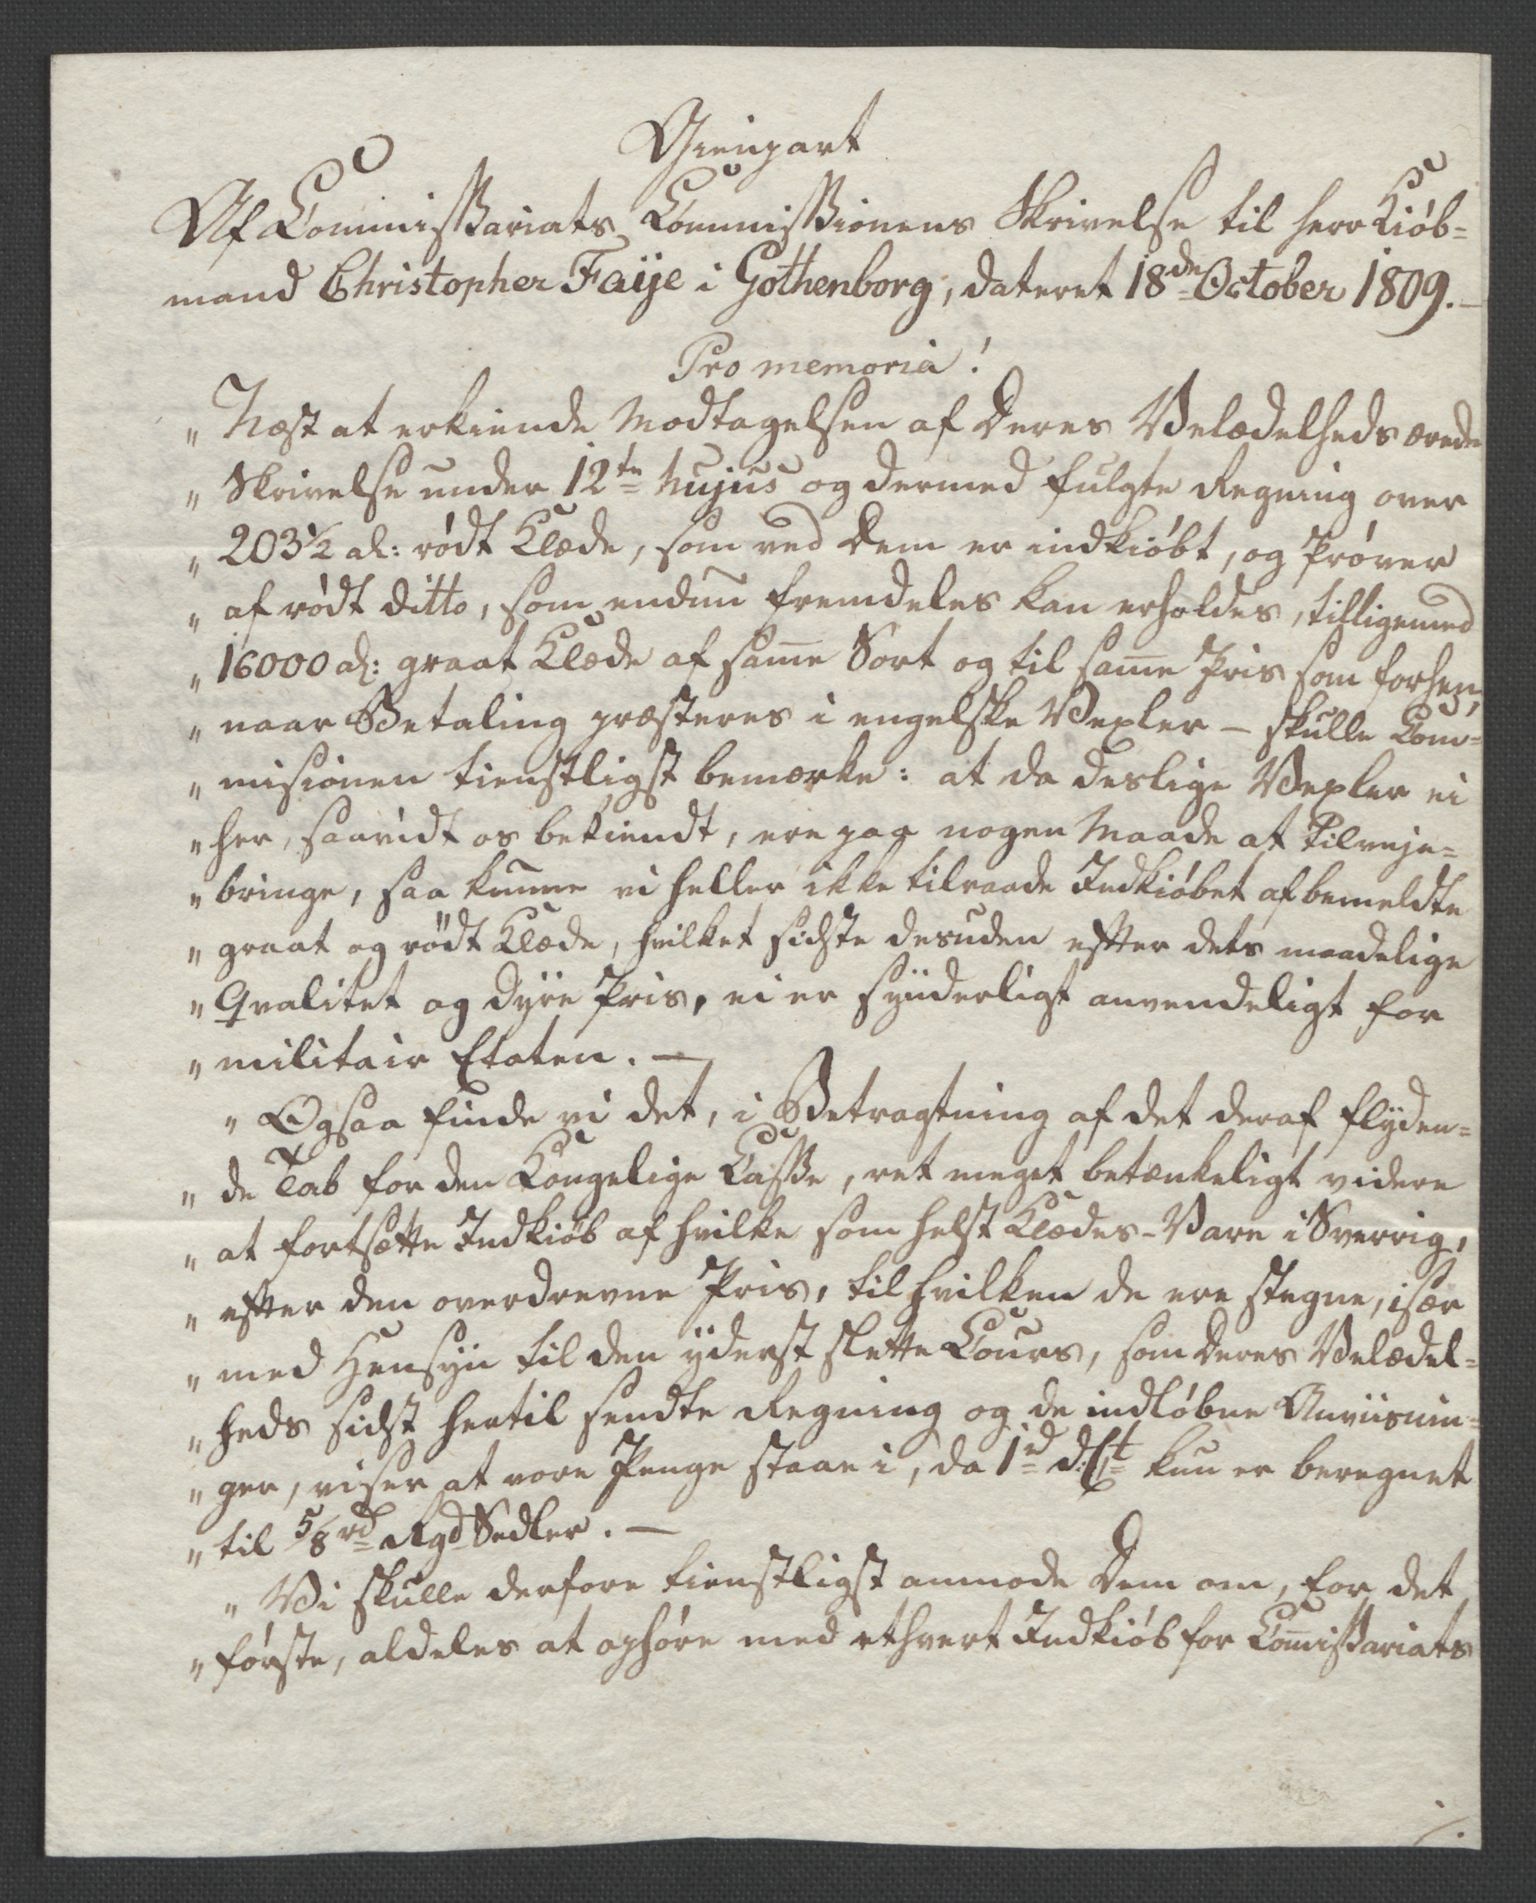 Gienpart
Af Commissariats Commissionens Skrivelse til Herr Kiöb=
mand Christopher Faÿe i Gothenborg, dateret 18de October 1809.—
Pro memoria!
„ Næst at erkiende Modtagelsen af Deres Velædelheds ærede
„ Skrivelse under 12te hujus og dermed fulgte Regning over
„ 203½ al: rödt Klæde, som ved Dem er indkiöbt, og Pröver
„ af rödt ditto, som endnu fremdeles kan erholdes, tilligemed
„ 16000 al: graat Klæde af samme Sort og til samme Pris som forhen,
„ naar Betaling præsteres i engelske Vexler — skulle Com=
„ misionen tienstligst bemærke: at da deslige Vexler ei
„ her, saavidt os bekiendt, ere paa nogen Maade at tilveje=
„ bringe, saa kunne vi heller ikke tilraade Indkiöbet af bemeldte
„ graat og rödt Klæde, hvilket sidste desuden efter dets maadelige
„ Qvalitet og dÿre Pris, ei er sÿnderligt anvendeligt for
„ militair Etaten. —
„ Ogsaa finde vi det, i Betragtning af det deraf flÿden=
„ de Tab for den Kongelige Casse, ret meget betænkeligt videre
„ at fortsætte Indkiöb af hvilke som helst Klædes-Vare i Sverrig,
„ efter den overdrevne Pris, til hvilken de ere stegne, især
„ med Hensÿn til den ÿderst slette Cours, som Deres Velædel=
„ heds sidst hertil sendte Regning og de indlöbne Anviisnin=
„ ger, viser at vore Penge staae i, da 1rd d: Ct kun er beregnet
„ til 5/8rd Rgd Sedler. —
„ Vi skulle derfore tienstligst anmode Dem om, for det
„ förste, aldeles at ophöre med ethvert Indkiöb for Commissariats